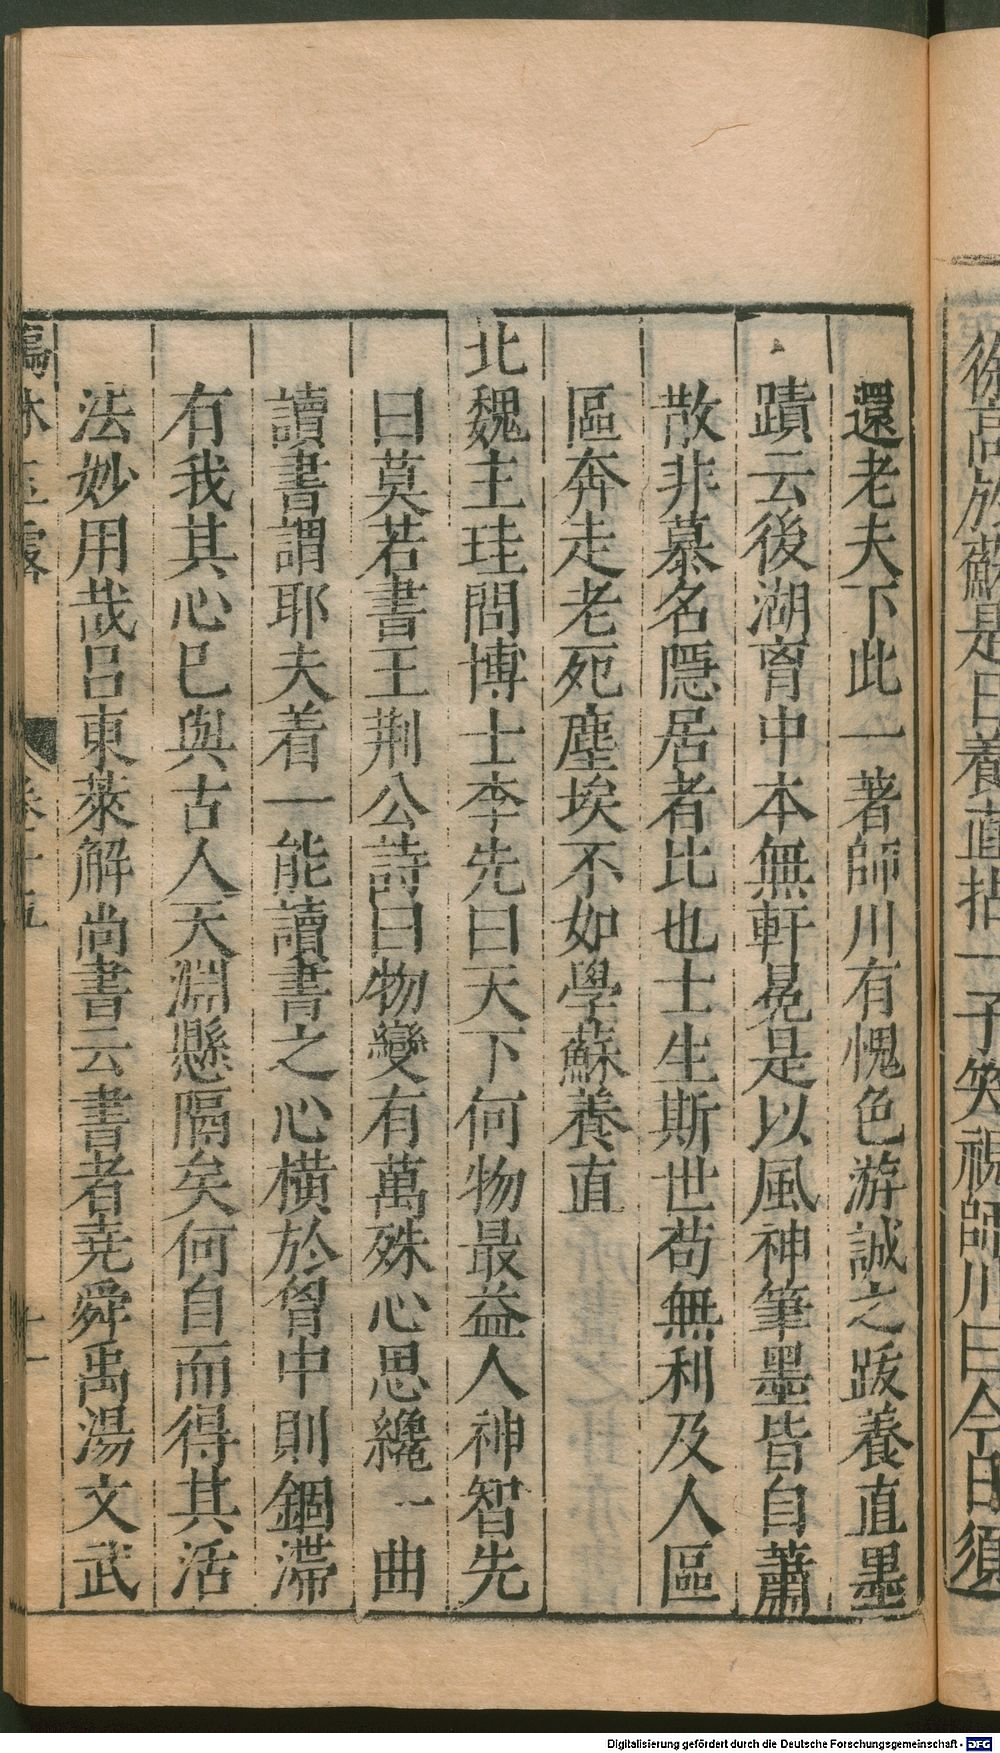 徐高於蘇是日養直拈一子笑視師川曰今日須
還老夫下此一著師川有愧色游誠之䟦養直墨
蹟云後湖胷中本無軒冕是以風神筆墨皆自蕭
散非慕名隱居者比也士生斯世苟無利及人區
區奔走老死塵埃不如學蘇養直
北魏主珪問博士李先曰天下何物最益人神智先
曰莫若書王荆公詩曰物變有萬殊心思纔一曲
讀書謂耶夫着一能讀書之心橫於胷中則錮滯
有我其心已與古人天淵懸隔矣何自而得其活
法妙用哉呂東萊解尚書云書者堯舜禹湯文武
林玉露
卷十五
十一
Digitalisierung gefördert durch die Deutsche Forschungsgemeinschaft - DFG